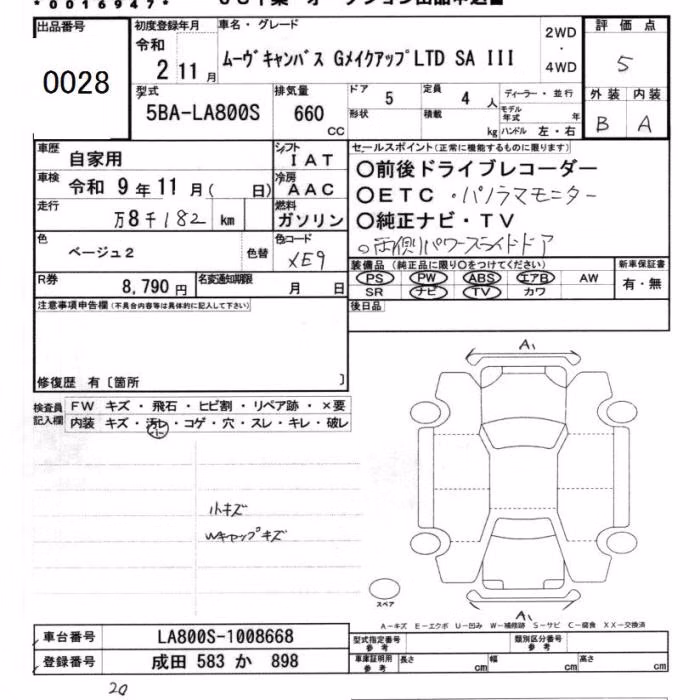 *0016947*
出品番号
0028
初度登録年月
令和
2 11月
車名・グレード
ムーヴキャンバス GメイクアップLTD SA III
2WD
・
4WD
評価点
5
外装 内装
B A
型式
5BA-LA800S
排気量
660
cc
ドア
5
定員
4 人
形状
積載
kg
ディーラー・並行
モデル年式 年
ハンドル 左・右
車歴
自家用
シフト
IAT
車検
令和 9年11月( 日)
冷房
AAC
走行
万8千182 km
燃料
ガソリン
色
ベージュ2
色替
色コード
XE9
R券
8,790円
名変通知期限
月 日
セールスポイント(正常に機能するものに限ります)
○前後ドライブレコーダー
○ETC ・パノラマモニター
○純正ナビ・TV
○両側パワースライドドア
装備品(純正品に限り○をつけてください)
PS PW ABS エアB AW
SR ナビ TV カワ
新車保証書
有・無
注意事項申告欄(不具合内容等は具体的に記入して下さい)
後日品
修復歴 有〔箇所 〕
検査員記入欄
FW キズ・飛石・ヒビ割・リペア跡・×要
内装 キズ・汚レ・コゲ・穴・スレ・キレ・破レ
小キズ
Wキャップキズ
A1
スペア
A1
A-キズ E-エクボ U-凹み W-補修跡 S-サビ C-腐食 XX-交換済
車台番号
LA800S-1008668
登録番号
成田 583 か 898
型式指定番号
参考
類別区分番号
参考
車庫証明用
参考
長さ cm
幅 cm
高さ cm
20